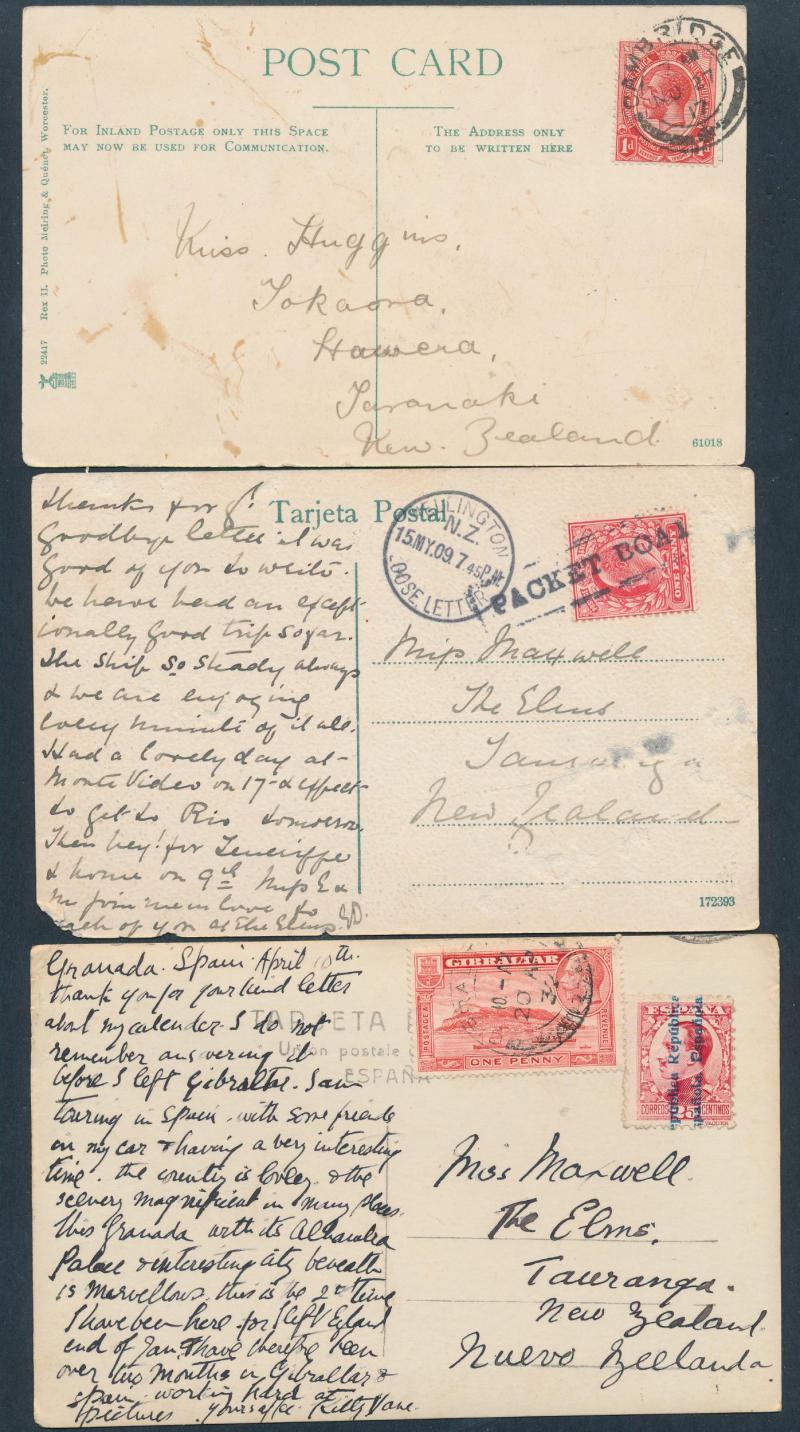 POST CARD
FOR INLAND POSTAGE ONLY THIS SPACE
MAY NOW BE USED FOR COMMUNICATION.
THE ADDRESS ONLY
TO BE WRITTEN HERE
CAMBRIDGE
1d
22417 Rex II. Photo Melring & Quénet, Worcester.
Miss Huggins,
Tokaora,
Hawera,
Taranaki
New Zealand
61018
Tarjeta Postal
WELLINGTON
N.Z.
15.MY.09.7.45P.M.
LOOSE LETTER
PACKET BOAT
ONE PENNY
Thanks for yr
Goodbye letter it was
good of you to write.
We have had an excep-
tionally good trip so far.
The ship so steady always
& we are enjoying
every minute of it all.
Had a lovely day at-
Monte Video on 17- & expect-
to get to Rio tomorrow.
Then hey! for Teneriffe
& home on 9th Miss E &
M join me in love to
each of you at the Elms ED.
Miss Maxwell
The Elms
Tauranga
New Zealand
172393
Granada. Spain. April 10th.
Thank you for your kind letter
about my calender. I do not
remember answering it
before I left Gibraltar. I am
touring in Spain. with some friends
in my car & having a very interesting
time. the country is lovely & the
scenery magnificent in many places.
This Granada with its Alhambra
Palace & interesting city beneath
is marvellous. this is the 2nd time
I have been here for I left England
end of Jan. & have therefore been
over two months in Gibraltar &
Spain. working hard at
pictures. yours affec. Kitty Vane.
TARJETA
Unión postale
ESPAÑA
GIBRALTAR
POSTAGE &
REVENUE
ONE PENNY
20 AP
32
ESPAÑA
República República
Española Española
CORREOS 25 CENTIMOS
Miss Maxwell.
The Elms.
Tauranga.
New Zealand.
Nuevo Zeelanda.